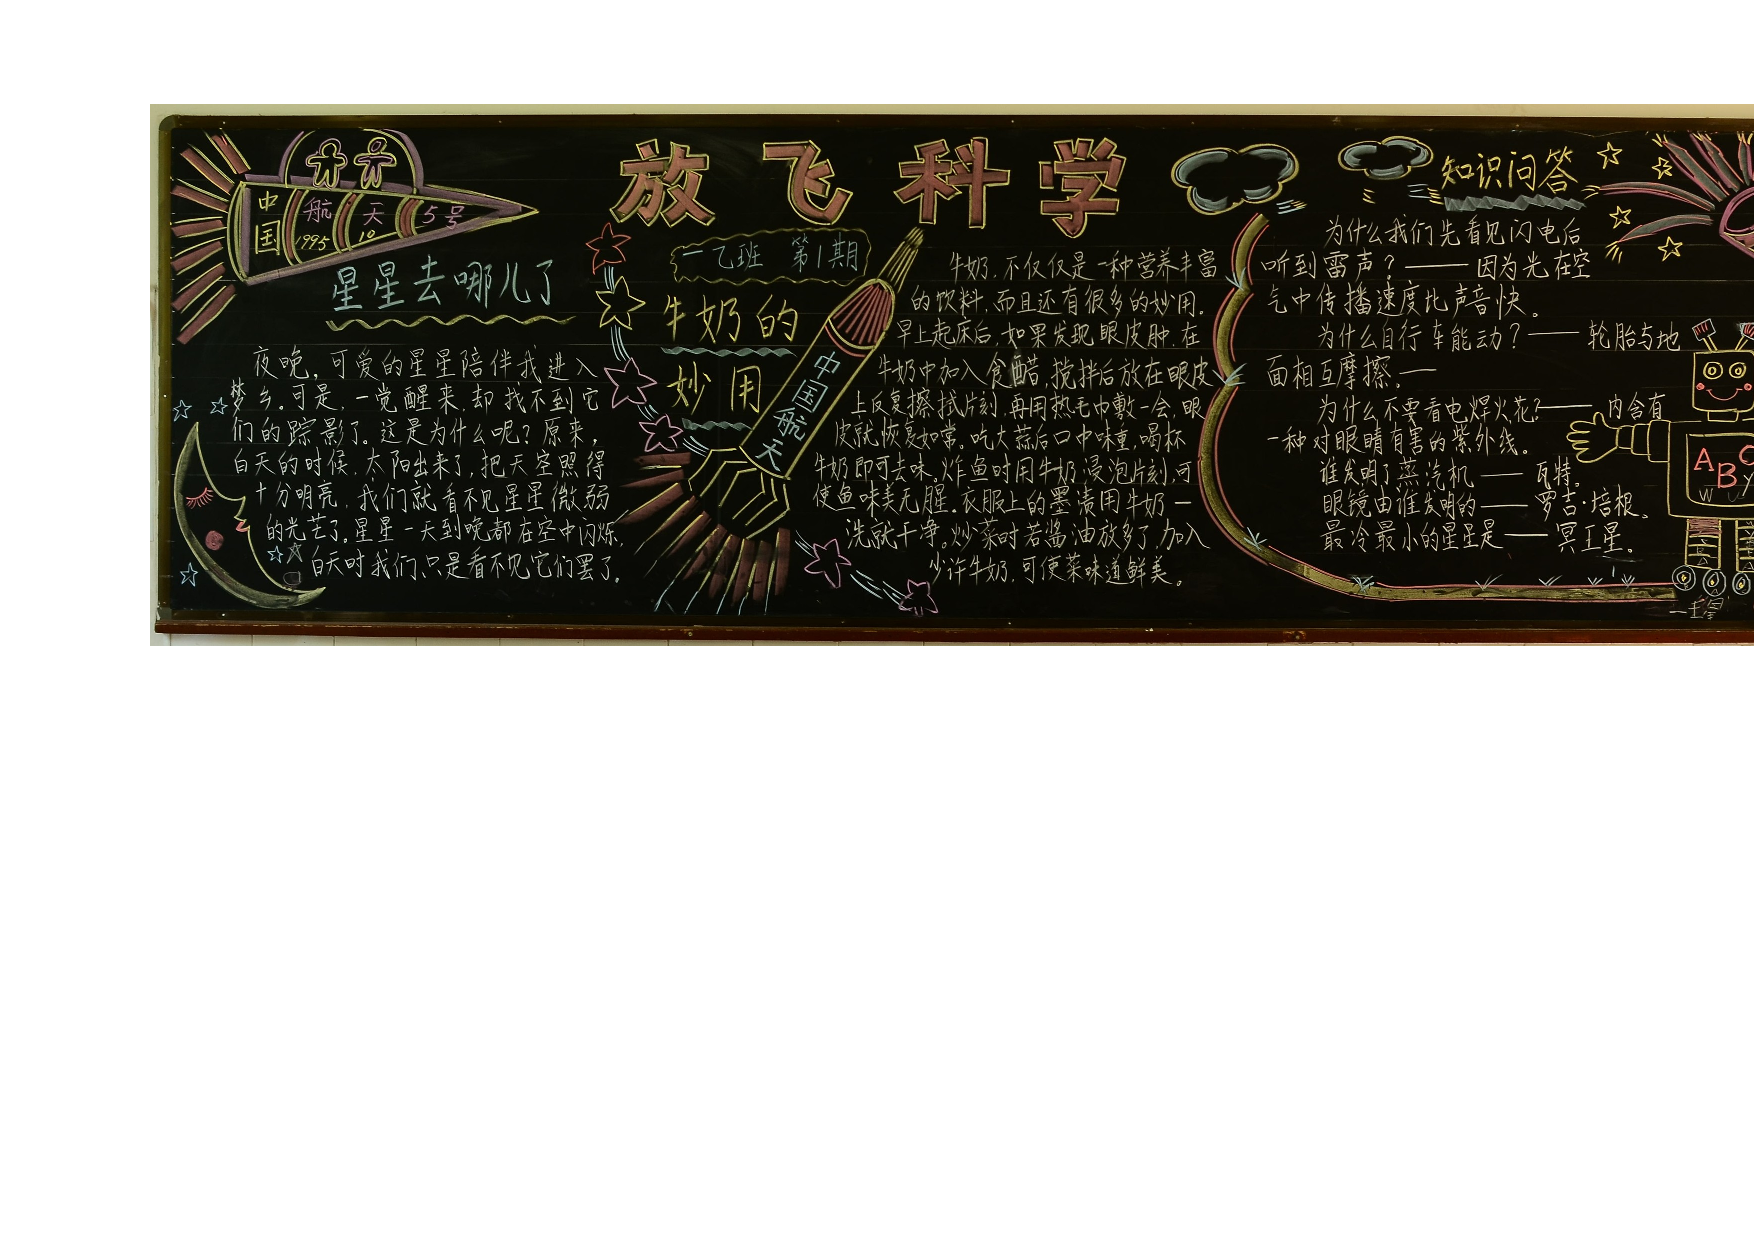 放飞科学
一乙班 第1期
中国
航天5号
1995 10
星星去哪儿了
夜晚，可爱的星星陪伴我进入
梦乡。可是，一觉醒来，却找不到它
们的踪影了。这是为什么呢？原来，
白天的时候，太阳出来了，把天空照得
十分明亮，我们就看不见星星微弱
的光芒了。星星一天到晚都在空中闪烁，
白天时我们只是看不见它们罢了。
牛奶的
妙用
中国航天
牛奶，不仅仅是一种营养丰富
的饮料，而且还有很多的妙用。
早上起床后，如果发现眼皮肿，在
牛奶中加入食醋，搅拌后放在眼皮
上反复擦拭片刻，再用热毛巾敷一会，眼
皮就恢复如常。吃大蒜后口中味重，喝杯
牛奶即可去味。炸鱼时用牛奶浸泡片刻，可
使鱼味美无腥。衣服上的墨渍用牛奶一
洗就干净。炒菜时若酱油放多了，加入
少许牛奶，可使菜味道鲜美。
知识问答
为什么我们先看见闪电后
听到雷声？——因为光在空
气中传播速度比声音快。
为什么自行车能动？——轮胎与地
面相互摩擦。——
为什么不要看电焊火花？——内含有
一种对眼睛有害的紫外线。
谁发明了蒸汽机——瓦特。
眼镜由谁发明的——罗吉·培根。
最冷最小的星星是——冥王星。
ABC